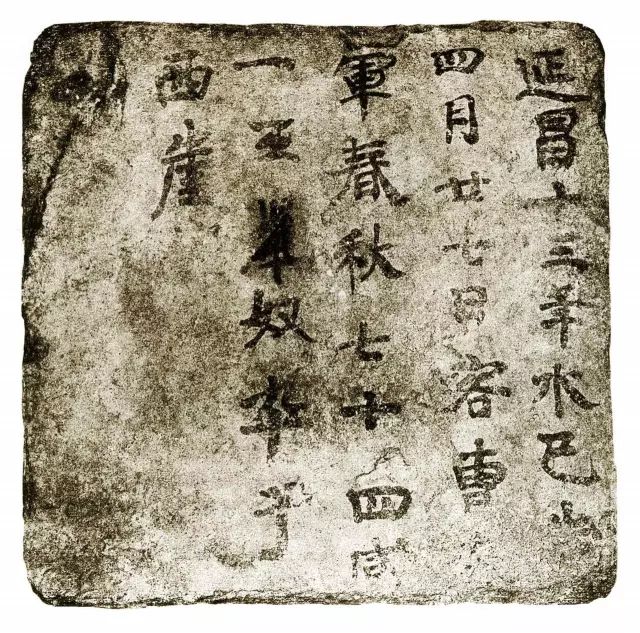 延昌十三年水巳
四月廿七日客曹
軍春秋七十四咸
一王奴卒于
西崖